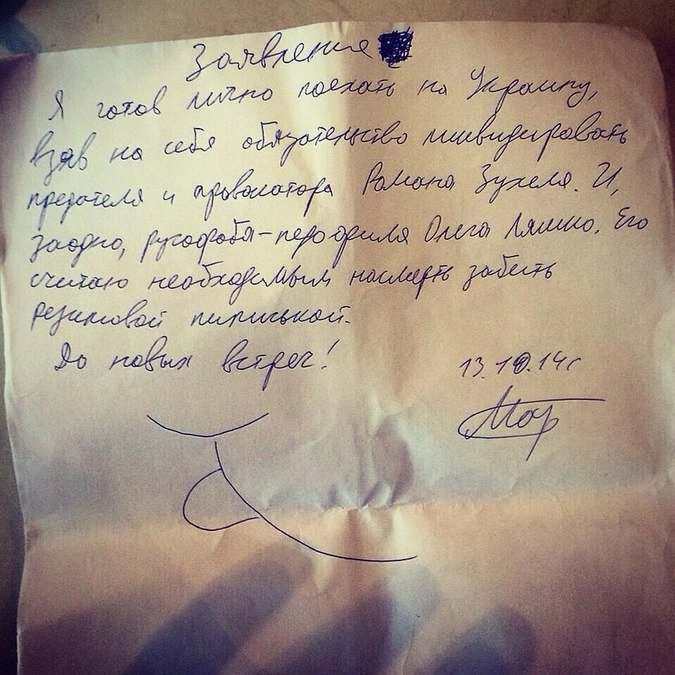 Заявление
Я готов лично поехать на Украину,
взяв на себя обязательство ликвидировать
предателя и провокатора Романа Зухеля. И,
заодно, русофоба-педофила Олега Ляшко. Его
считаю необходимым насмерть забить
резиновой пиписькой.
До новых встреч!
13.10.14г